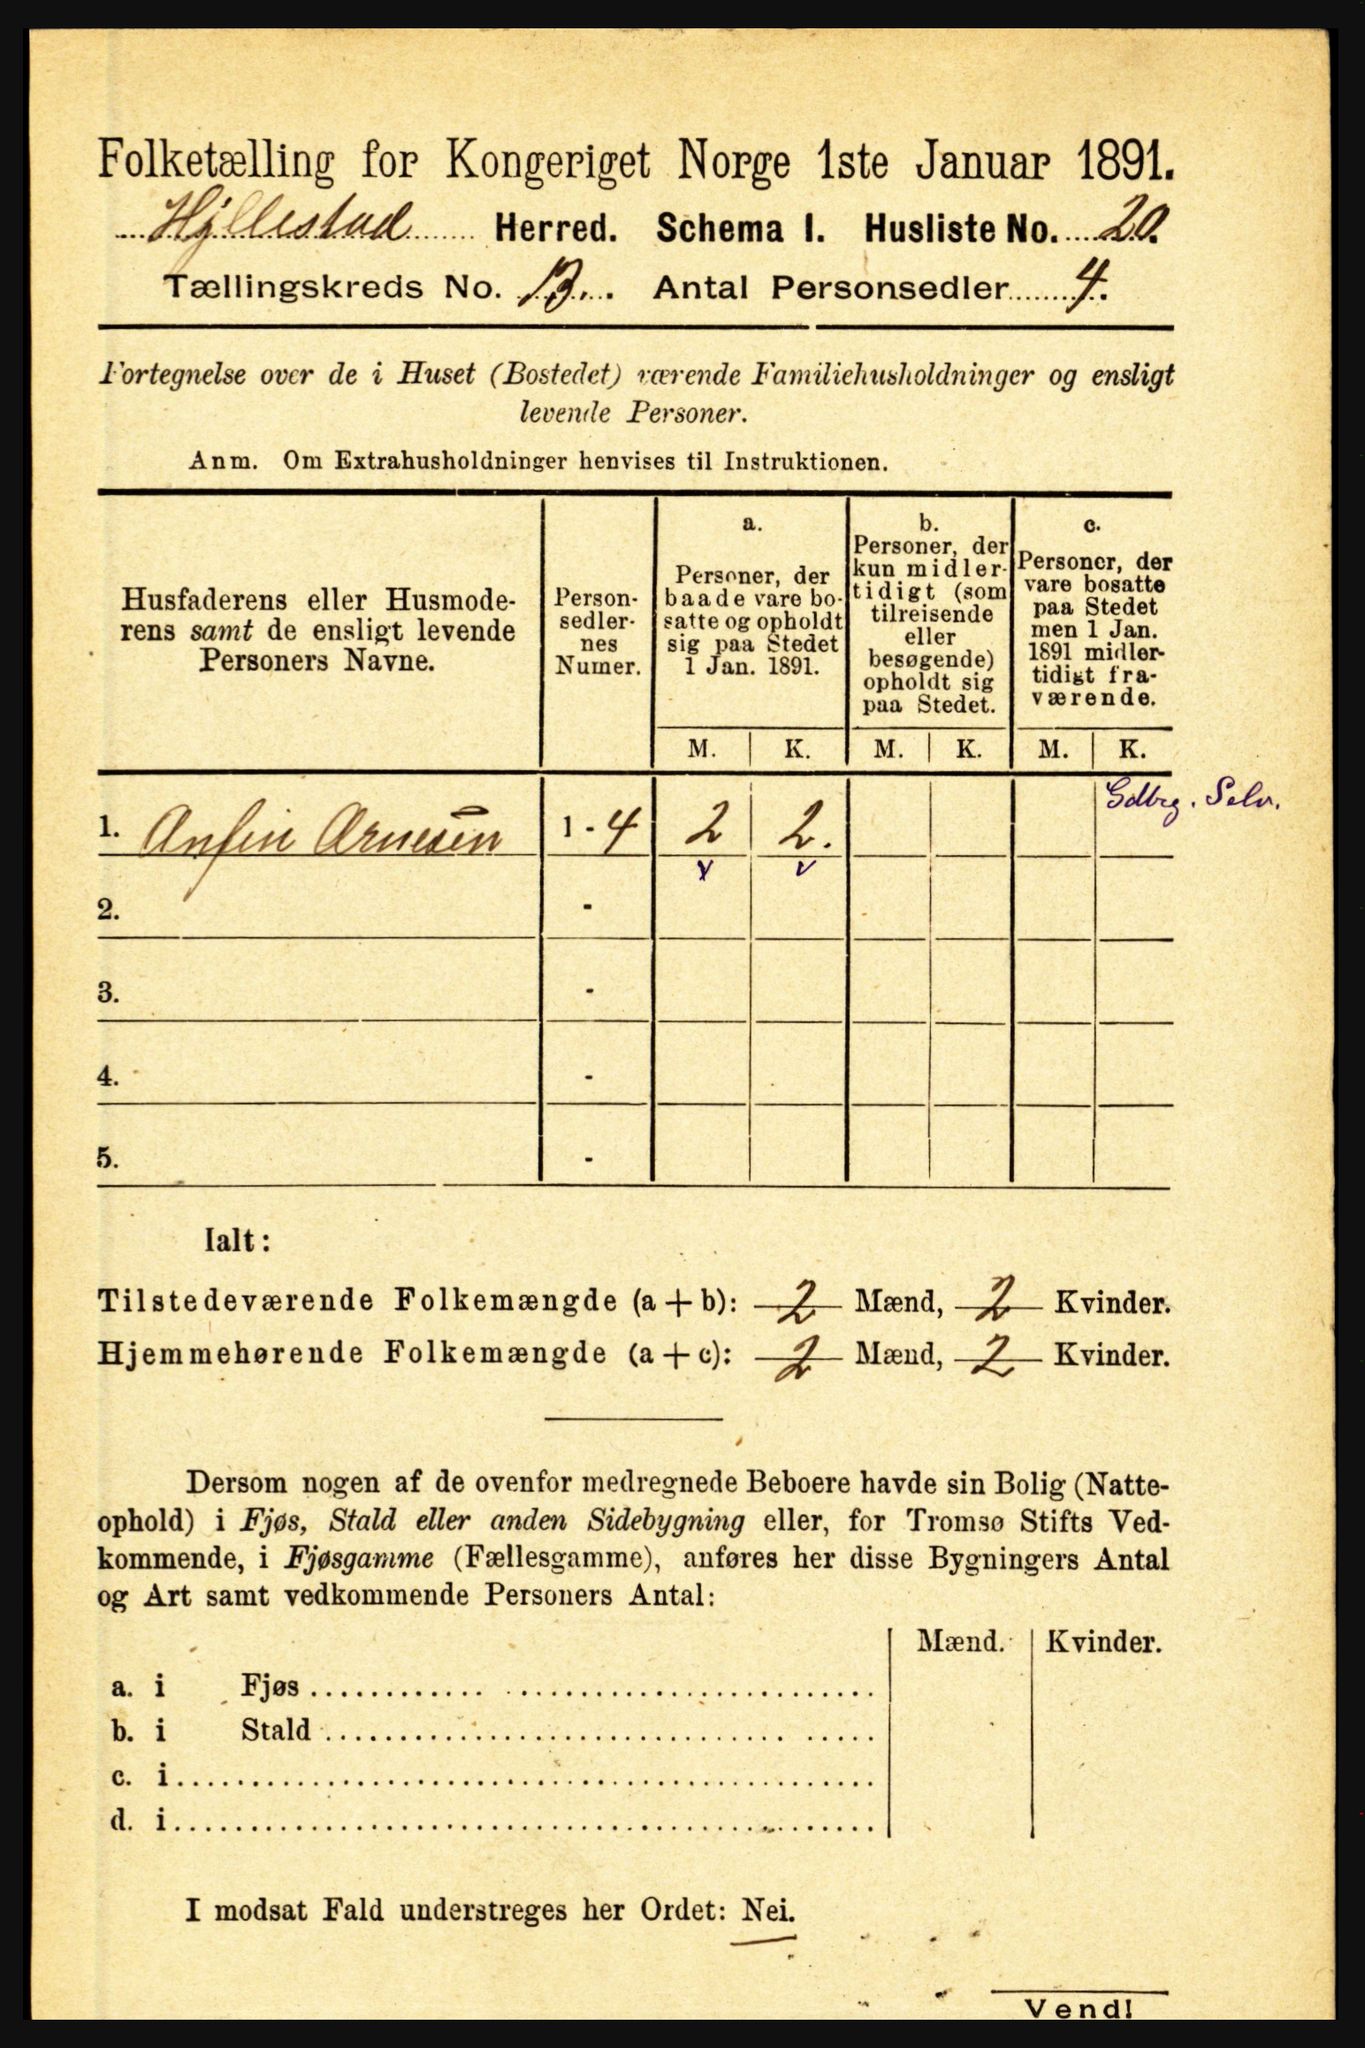 Folketælling for Kongeriget Norge 1ste Januar 1891.
Hyllestad Herred. Schema I. Husliste No. 20.
Tællingskreds No. 13. Antal Personsedler 4.
Fortegnelse over de i Huset (Bostedet) værende Familiehusholdninger og ensligt
levende Personer.
Anm. Om Extrahusholdninger henvises til Instruktionen.
Husfaderens eller Husmode-
rens samt de ensligt levende
Personers Navne.
Person-
sedler-
nes
Numer.
a.
Personer, der
baade vare bo-
satte og opholdt
sig paa Stedet
1 Jan. 1891.
b.
Personer, der
kun midler-
tidigt (som
tilreisende
eller
besøgende)
opholdt sig
paa Stedet.
c.
Personer, der
vare bosatte
paa Stedet
men 1 Jan.
1891 midler-
tidigt fra-
værende.
M. K. M. K. M. K.
Gdbrg. Selv.
1. Anfin Arnesen 1 - 4 2 2.
v v
2. -
3. -
4. -
5. -
Ialt:
Tilstedeværende Folkemængde (a + b): 2 Mænd, 2 Kvinder.
Hjemmehørende Folkemængde (a + c): 2 Mænd, 2 Kvinder.
Dersom nogen af de ovenfor medregnede Beboere havde sin Bolig (Natte-
ophold) i Fjøs, Stald eller anden Sidebygning eller, for Tromsø Stifts Ved-
kommende, i Fjøsgamme (Fællesgamme), anføres her disse Bygningers Antal
og Art samt vedkommende Personers Antal:
Mænd. Kvinder.
a. i Fjøs
b. i Stald
c. i
d. i
I modsat Fald understreges her Ordet: Nei.
Vend!